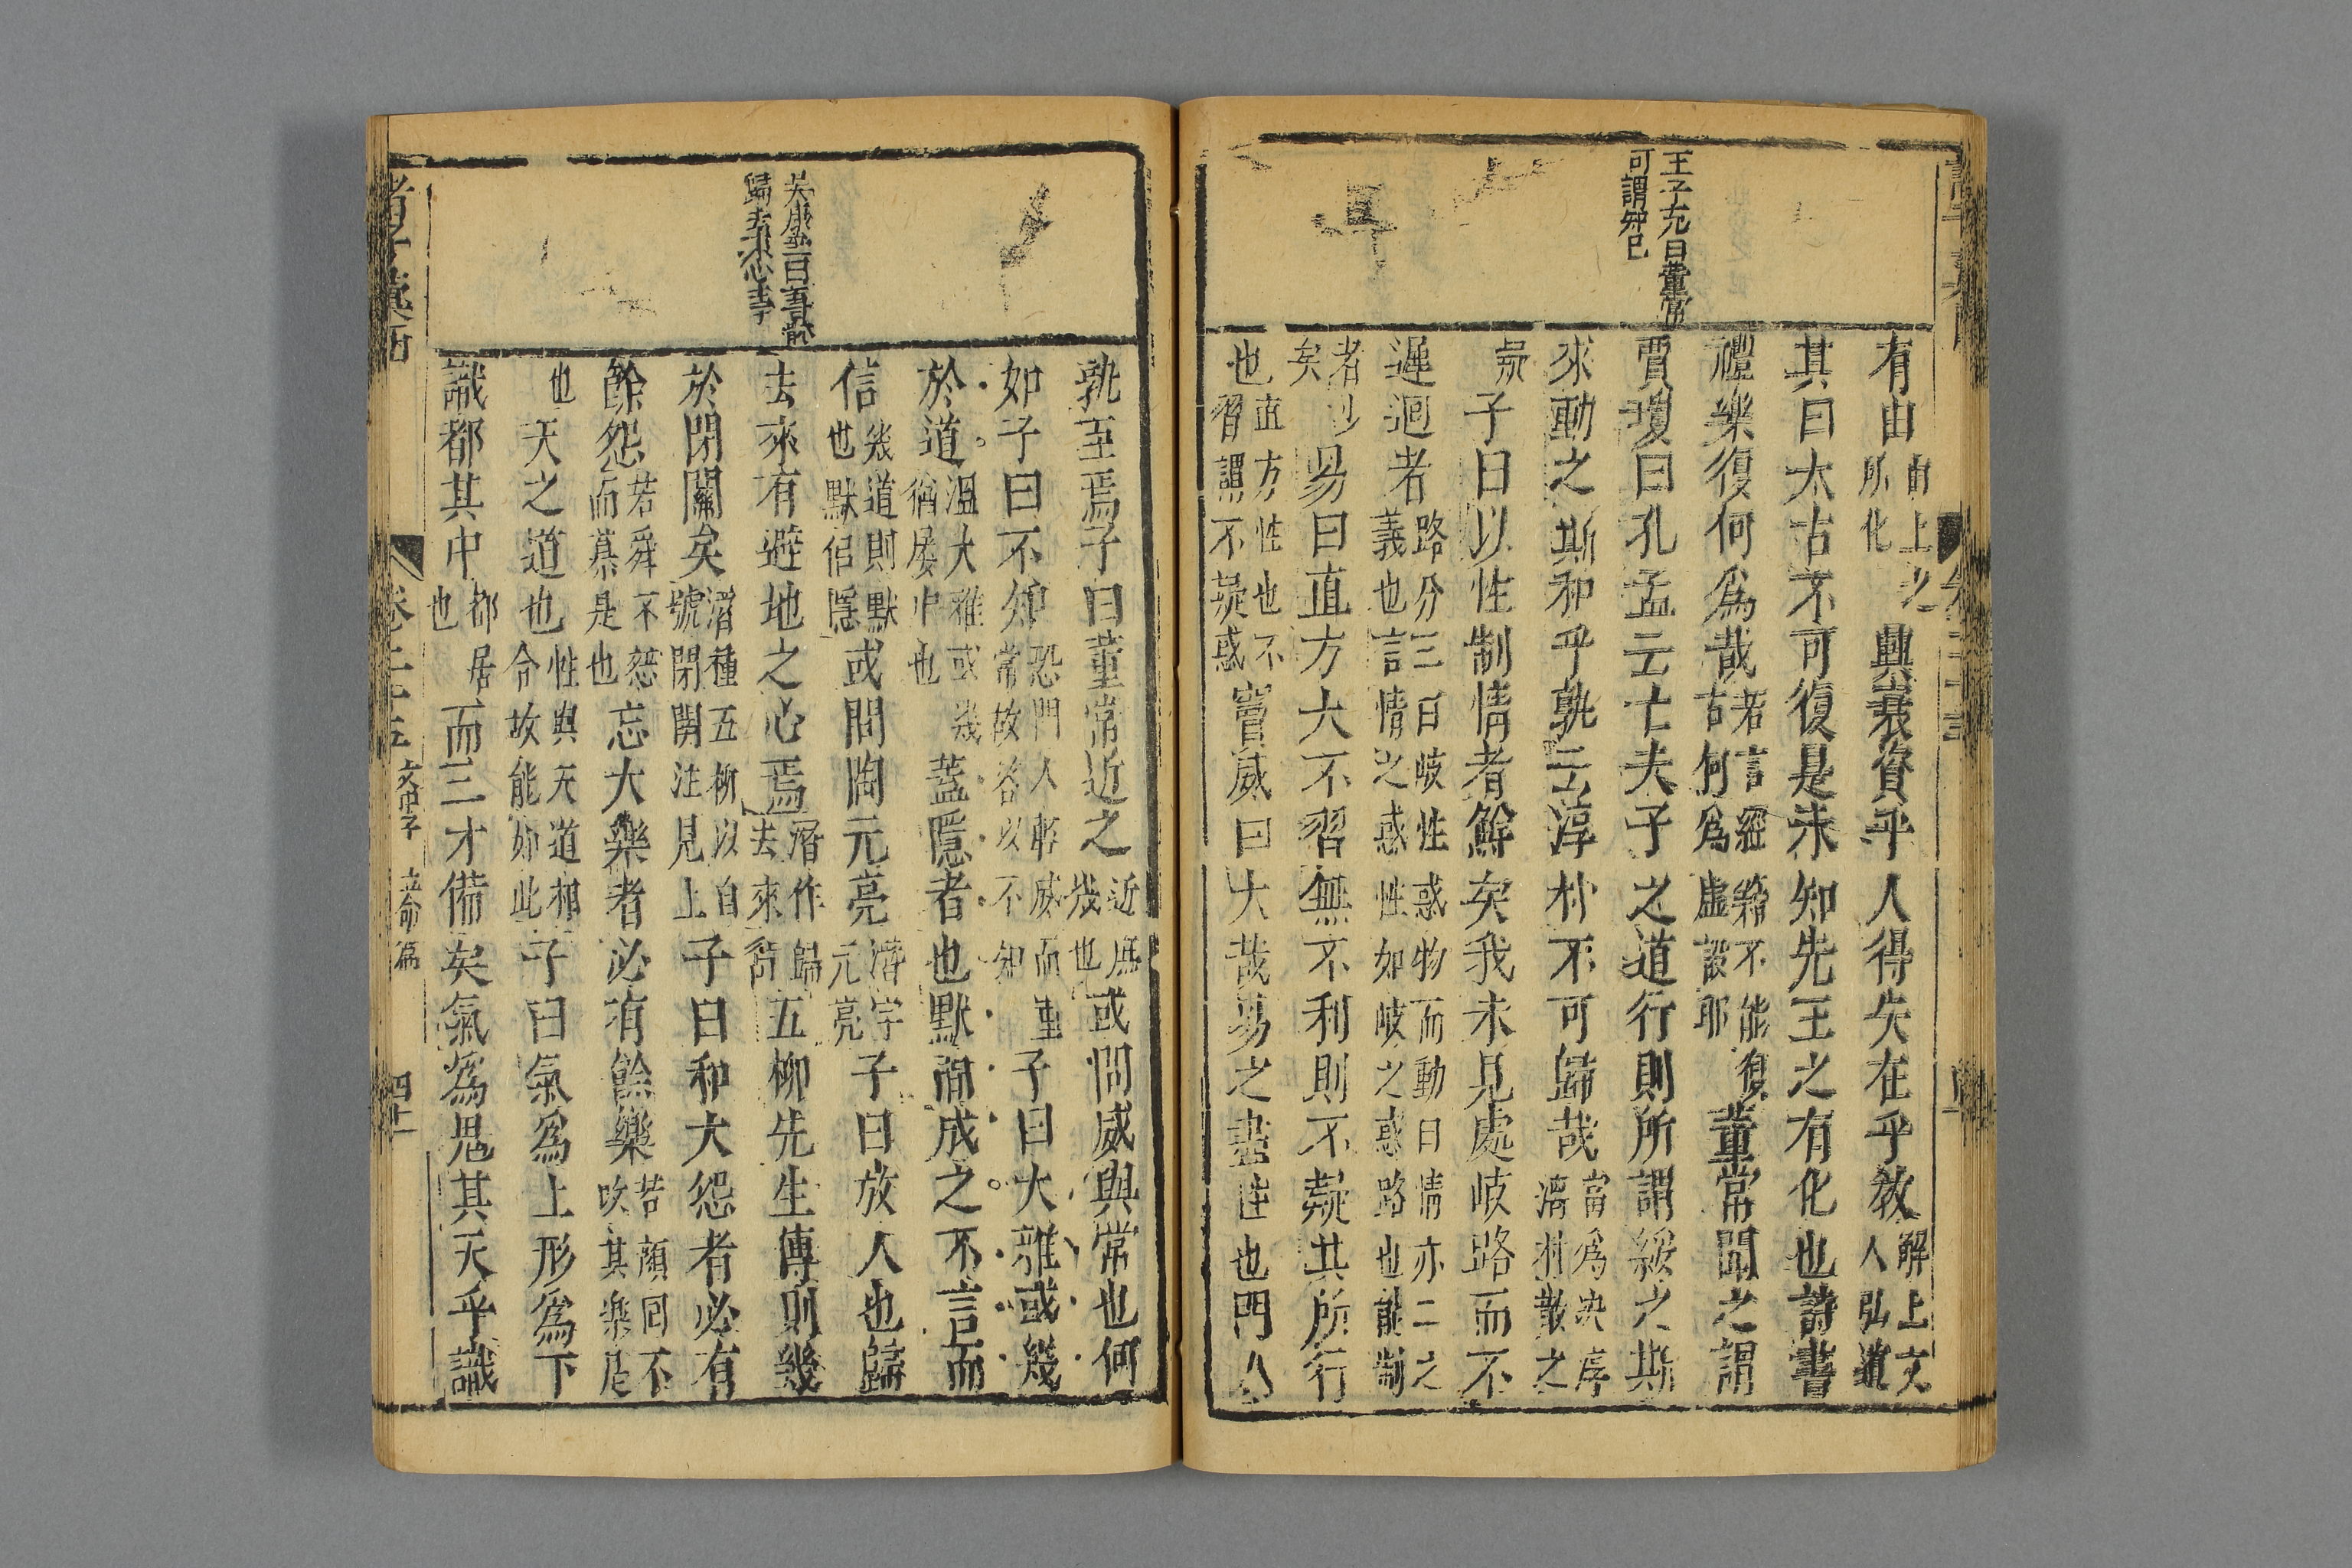 王子充曰董常
可謂知巳
有由由上之所化興衰資乎人得失在乎敎解上文人弘道
其曰太古不可復是未知先王之有化也詩書
禮樂復何爲哉若言經籍不能復古何爲虛設耶董常聞之謂
賈瓊曰孔孟云亡夫子之道行則所謂綏之斯
來動之斯和乎孰云淳朴不可歸哉當爲決序澆朴散之
㷼子曰以性制情者鮮矣我未見處岐路而不
遲迴者路分三曰岐性惑物而動曰情亦二之義也言情之惑性如岐之惑路也能制
者少矣易曰直方大不習無不利則不疑其所行
也直方性也不習謂不疑惑竇威曰大哉易之盡性也門人
孰至焉子曰董常近之近庶幾也或問威與常也何
如子曰不知恐門人輕威而重常故答以不知子曰大雅或幾
於道溫大雅或幾猶屢中也蓋隱者也默而成之不言而
信幾道則默也默但隱或問陶元亮潛字元亮子曰放人也歸
去來有避地之心焉潛作歸去來辭五柳先生傳則幾
於閉關矣潛種五柳以自號閉關注見上子曰和大怨者必有
餘怨若舜不怨而慕是也忘大樂者必有餘樂若顏回不改其樂是
也天之道也性與天道相合故能如此子曰氣爲上形爲下
識都其中都居也而三才備矣氣爲鬼其天乎識
諸子彙函
卷二十三
文中子
立命篇
四十